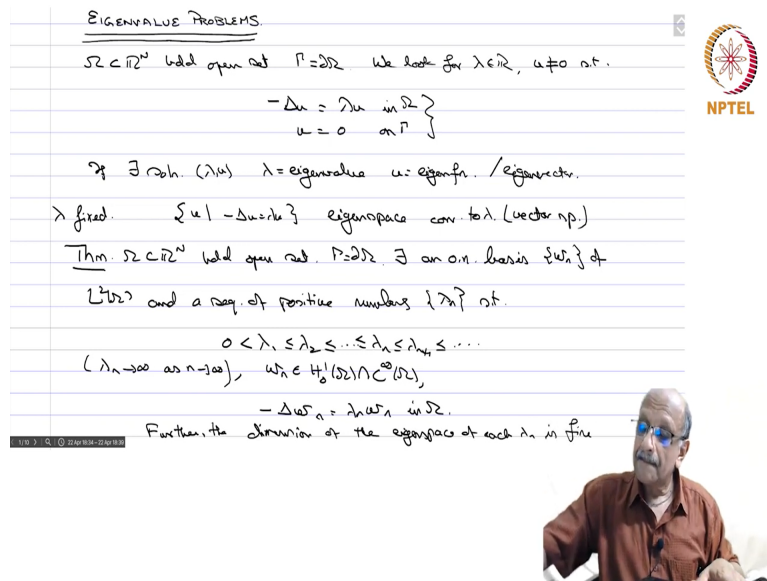 EIGENVALUE PROBLEMS.
Ω ⊂ ℝᴺ bdd open set Γ=∂Ω We look for λ∈ℝ, u≠0 s.t.
-Δu = λu in Ω
u = 0 on Γ
If ∃ soln. (λ,u) λ = eigenvalue u = eigenfn. /eigenvector.
λ fixed. {u | -Δu=λu} eigenspace corr. to λ. (vector sp.)
Thm. Ω ⊂ ℝᴺ bdd open set. Γ=∂Ω. ∃ an o.n. basis {wₙ} of
L²(Ω) and a seq. of positive numbers {λₙ} s.t.
0 < λ₁ ≤ λ₂ ≤ ... ≤ λₙ ≤ λₙ₊₁ ≤ ....
(λₙ→∞ as n→∞), wₙ ∈ H₀¹(Ω)∩C^∞(Ω),
-Δwₙ = λₙwₙ in Ω.
Further, the dimension of the eigenspace of each λₙ is fini
NPTEL
1/10 22 Apr 18:34 – 22 Apr 18:39